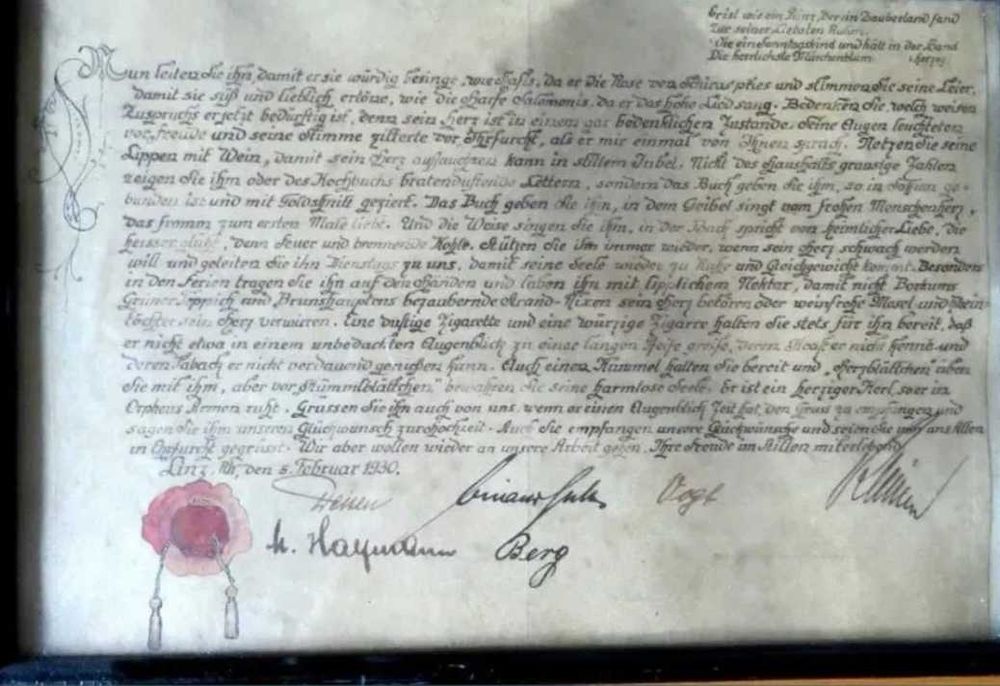 Er ist wie ein Prinz, der im Zauberland fand
Zur seiner Liebsten Ruhm,
Wie ein Sonntagskind und hält in der Hand
Die herrlichste Märchenblum
Nun leiten Sie ihn, damit er sie würdig besinge, wie Hafis, da er die Rose von Schiras pries und stimmen Sie seine Leier,
damit sie süß und lieblich ertöne, wie die Harfe Salomonis, da er das hohe Lied sang. Bedenken Sie welch weisen
Zuspruchs er jetzt bedürftig ist, denn sein Herz ist in einem gar bedenklichen Zustande. Seine Augen leuchteten
vor Freude und seine Stimme zitterte vor Ehrfurcht, als er mir einmal von Ihnen sprach. Netzen Sie seine
Lippen mit Wein, damit sein Herz aufjauchzen kann in stillem Jubel. Nicht des Haushalts grausige Zahlen
zeigen Sie ihm oder des Kochbuchs bratenduftende Lettern, sondern das Buch geben Sie ihm, so in Saffian ge-
bunden ist und mit Goldschnitt geziert. Das Buch geben Sie ihm, in dem Geibel singt vom frohen Menschenherz,
das fromm zum ersten Male liebt. Und die Weise singen Sie ihm, in der Bach spricht von heimlicher Liebe, die
heisser glüht, denn Feuer und brennende Kohle. Stützen Sie ihn immer wieder, wenn sein Herz schwach werden
will und geleiten Sie ihn Dienstags zu uns, damit seine Seele wieder zu Ruhe und Gleichgewicht kommt. Besonders
in den Ferien tragen Sie ihn auf den Händen und laben ihn mit lipplichem Nektar, damit nicht Borkums
Grüner Teppich und Brunshauptens bezaubernde Strand-Nixen sein Herz betören oder weinfrohe Mosel und Rhein-
töchter sein Herz verwirren. Eine duftige Zigarette und eine würzige Zigarre halten Sie stets für ihn bereit, daß
er nicht etwa in einem unbedachten Augenblick zu einer langen Pfeife greife, deren er nicht kennt und
deren Taback er nicht verdauend genießen kann. Auch einen Kümmel halten Sie bereit und „Herzblättchen" üben
Sie mit ihm, aber vor „Stummelblättchen" bewahren Sie seine harmlose Seele. Er ist ein herziger Kerl, so er in
Orpheus Armen ruht. Grüssen Sie ihn auch von uns, wenn er einen Augenblick Zeit hat, den Gruss zu empfangen und
sagen Sie ihm unseren Glückwunsch zur Hochzeit. Auch Sie empfangen unsere Glückwünsche und seien Sie von uns Allen
in Ehrfurcht gegrüsst. Wir aber wollen wieder an unsere Arbeit gehen, Ihre Freude im Stillen miterlebend
Linz, Rh, den 5. Februar 1930.
Vogt
H. Haymann Berg